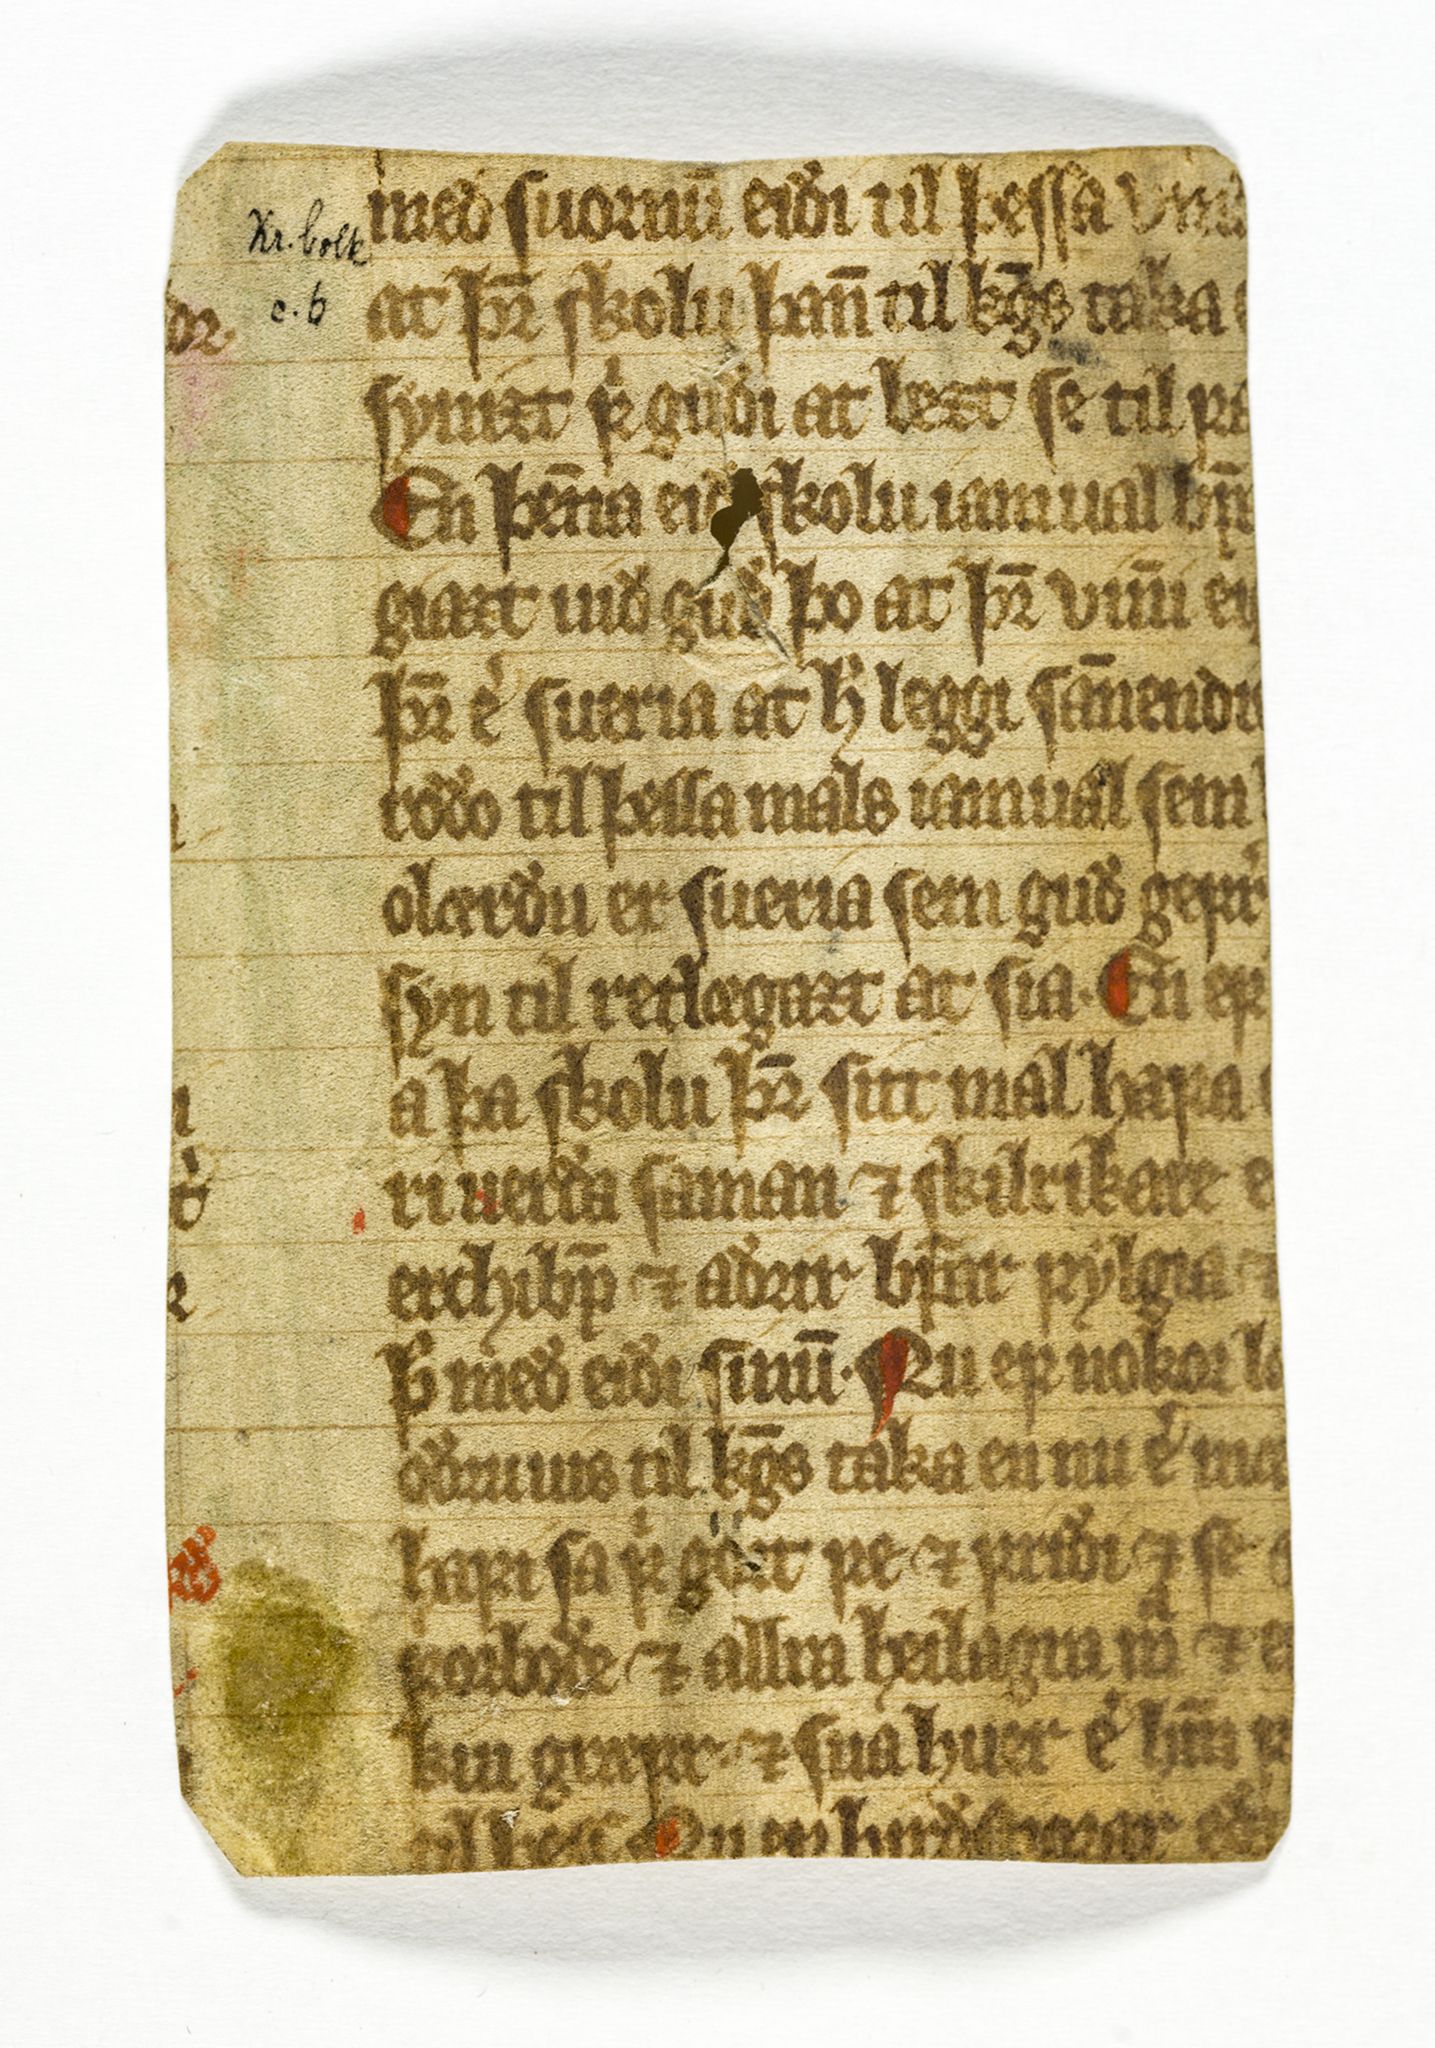 Kr. bolk
c. 6
með suornū eiði til þessa vin
at þr̄ skolu þañ til kḡs taka
synizt f͛ guði at bezt se til fa
En þēna eið skolu iamual bp̄
giazt uið guð þo at þr̄ vinī ey
þr̄ e͛ sueria at h͛ leggi sāuendu
todo til þessa mals iamual sem
olærðu er sueria sem guð gefr
syn til retlægazt at sia. En ef
a þa skolu þr̄ sitt mal hafa
ri uerða saman ⁊ skilrikare
erchibp̄ ⁊ aðrir bp̄ar fylgia ⁊
þ͛ með eiði sinū. Nu ef nokor
oðruuis til kḡs taka en nu e͛ m
hafi sa f͛ gort fe ⁊ friði ⁊ se
forboðe ⁊ allra heilagra m̄ ⁊
kiu grefar ⁊ sua huer e͛ hm̄ f
Nu er hirð